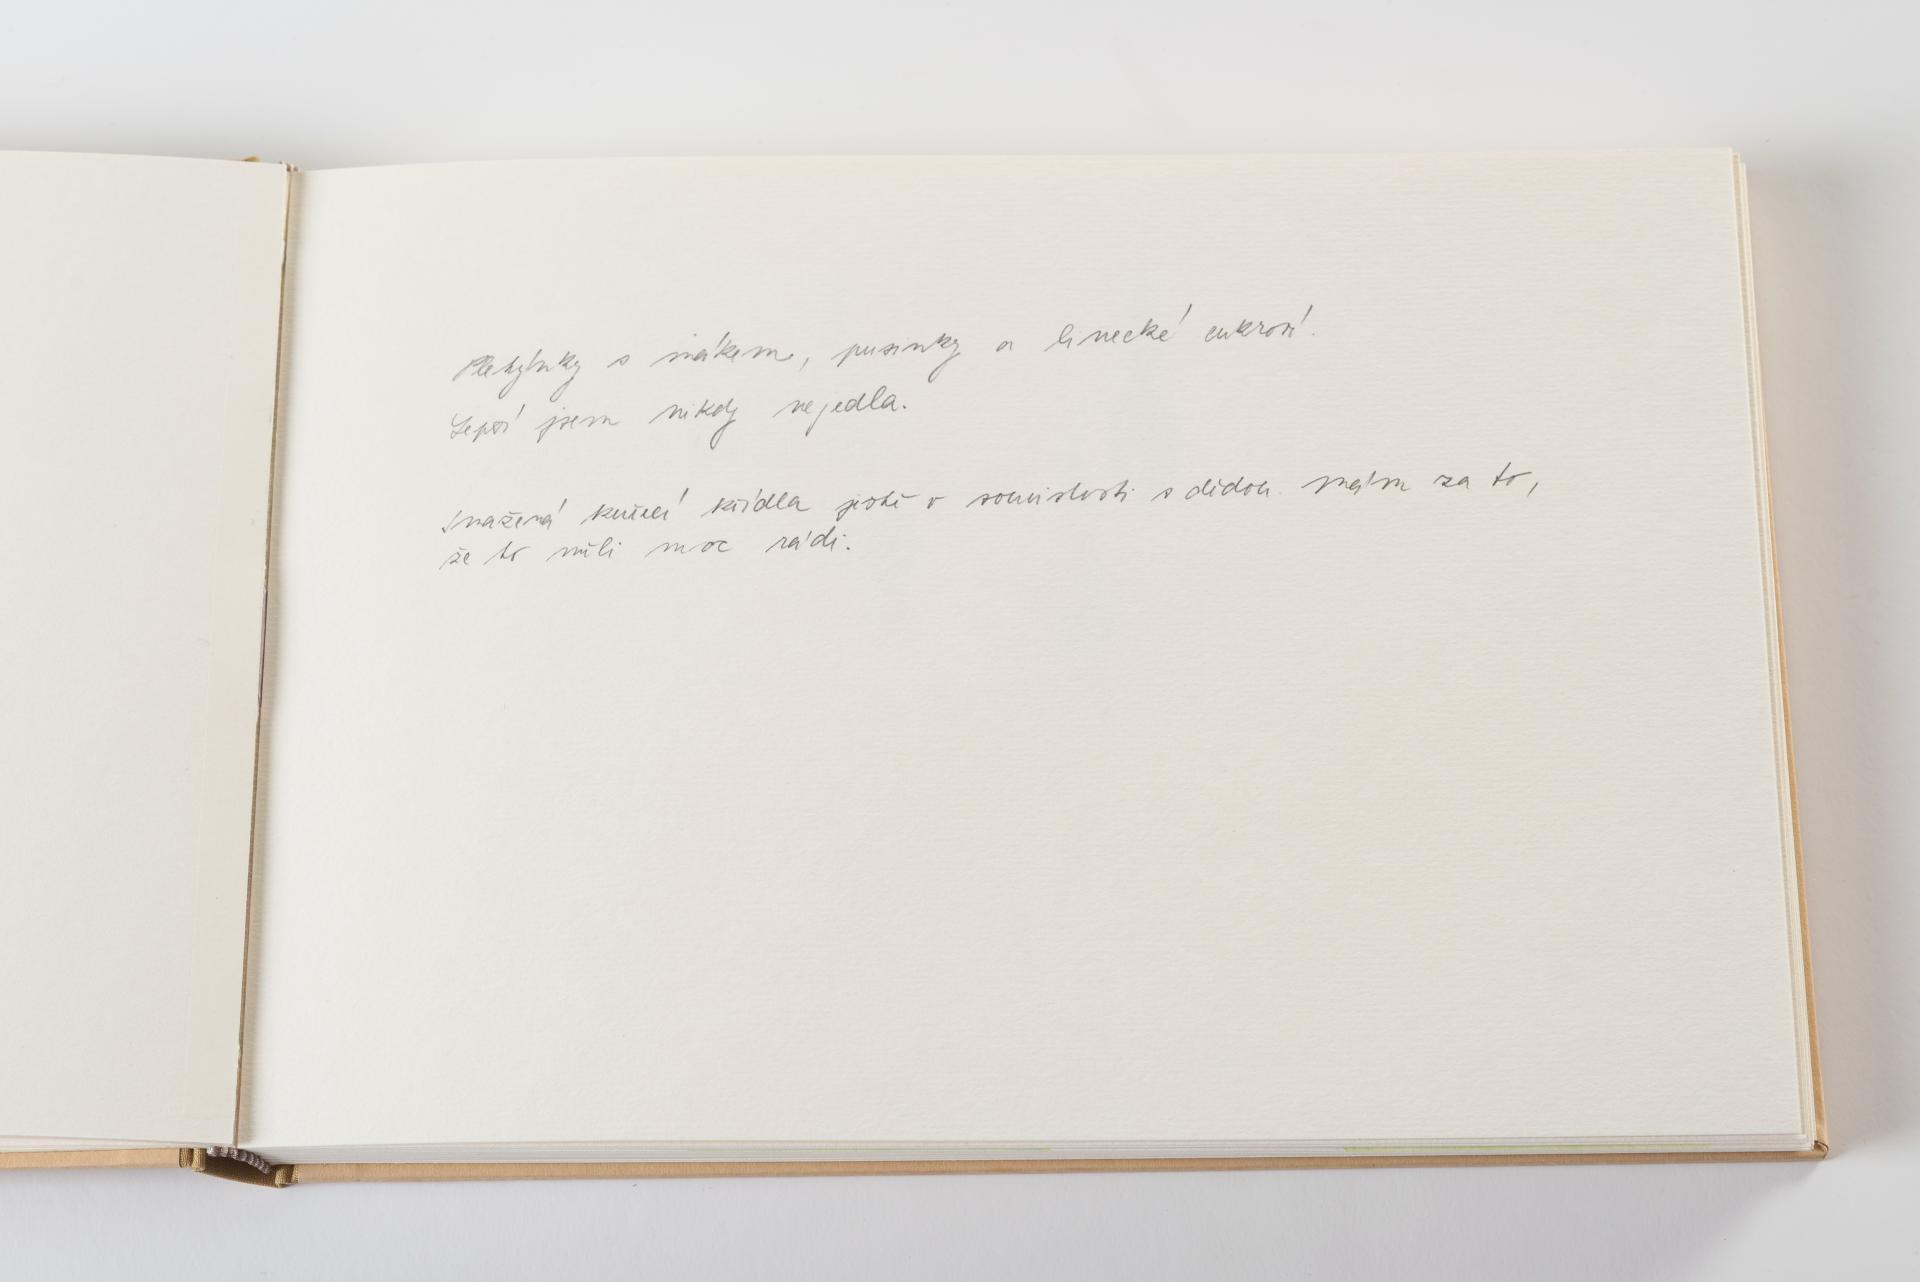 Pletýnky s mákem, pusinky a linecké cukroví.
Lepší jsem nikdy nejedla.
Smažená kuřecí křídla ještě v souvislosti s dědou. mám za to,
že to měli moc rádi.